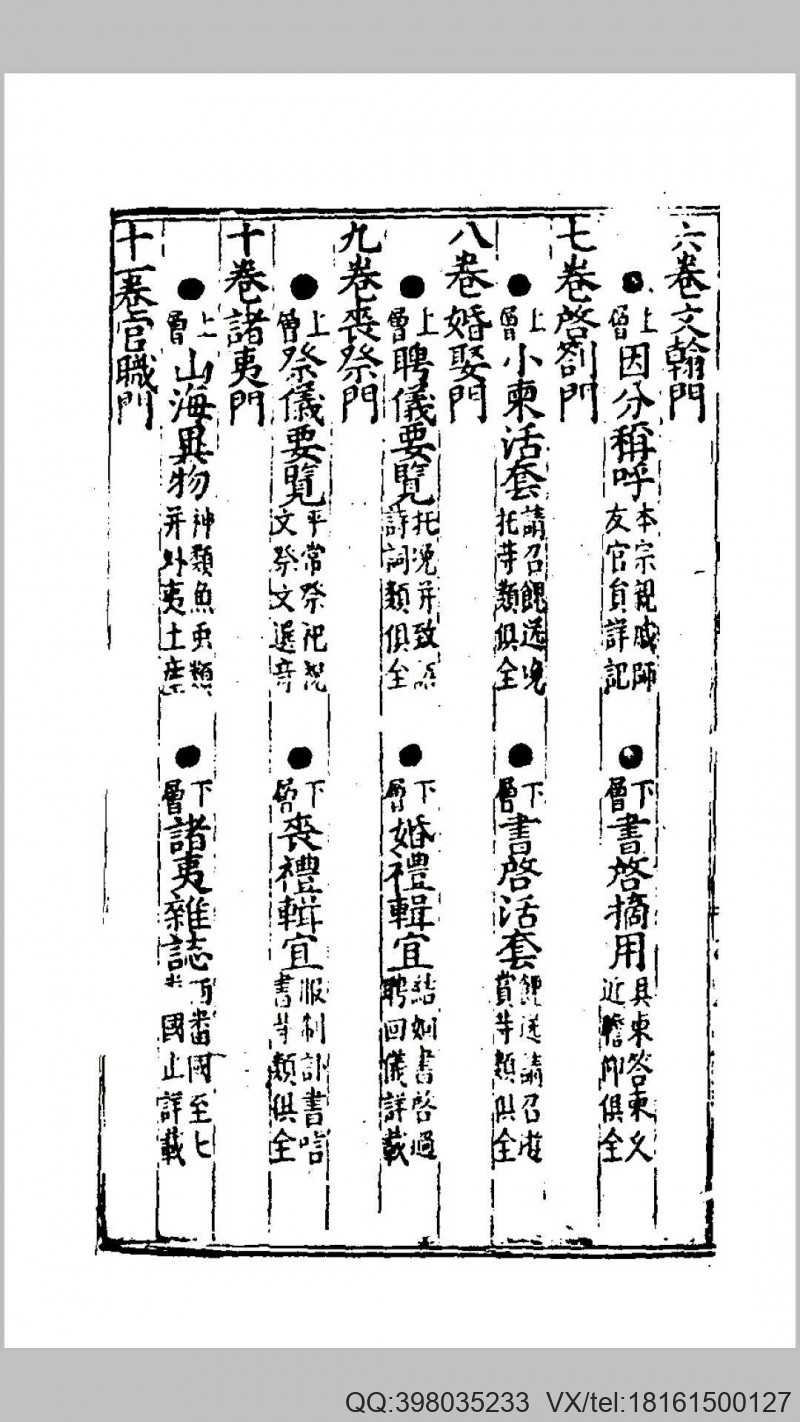 六卷文翰門
●上層因分稱呼本宗親戚師友官員詳記 ●下層書啓摘用具柬答柬久近瞻仰俱全
七卷啓劄門
●上層小柬活套請召餽送托等類俱全 ●下層書啓活套餽送請召賞等類俱全
八卷婚娶門
●上層聘儀要覽并致語詩詞類俱全 ●下層婚禮輯宜結姻書啓過聘回儀詳載
九卷喪祭門
●上層祭儀要覽平常祭祀祝文祭文選奇 ●下層喪禮輯宜服制訃書書等類俱全
十卷諸夷門
●上層山海異物神類魚虫類并外夷土産 ●下層諸夷雜誌番國至國止詳載
十一卷官職門
QQ:398035233 VX/tel:18161500127